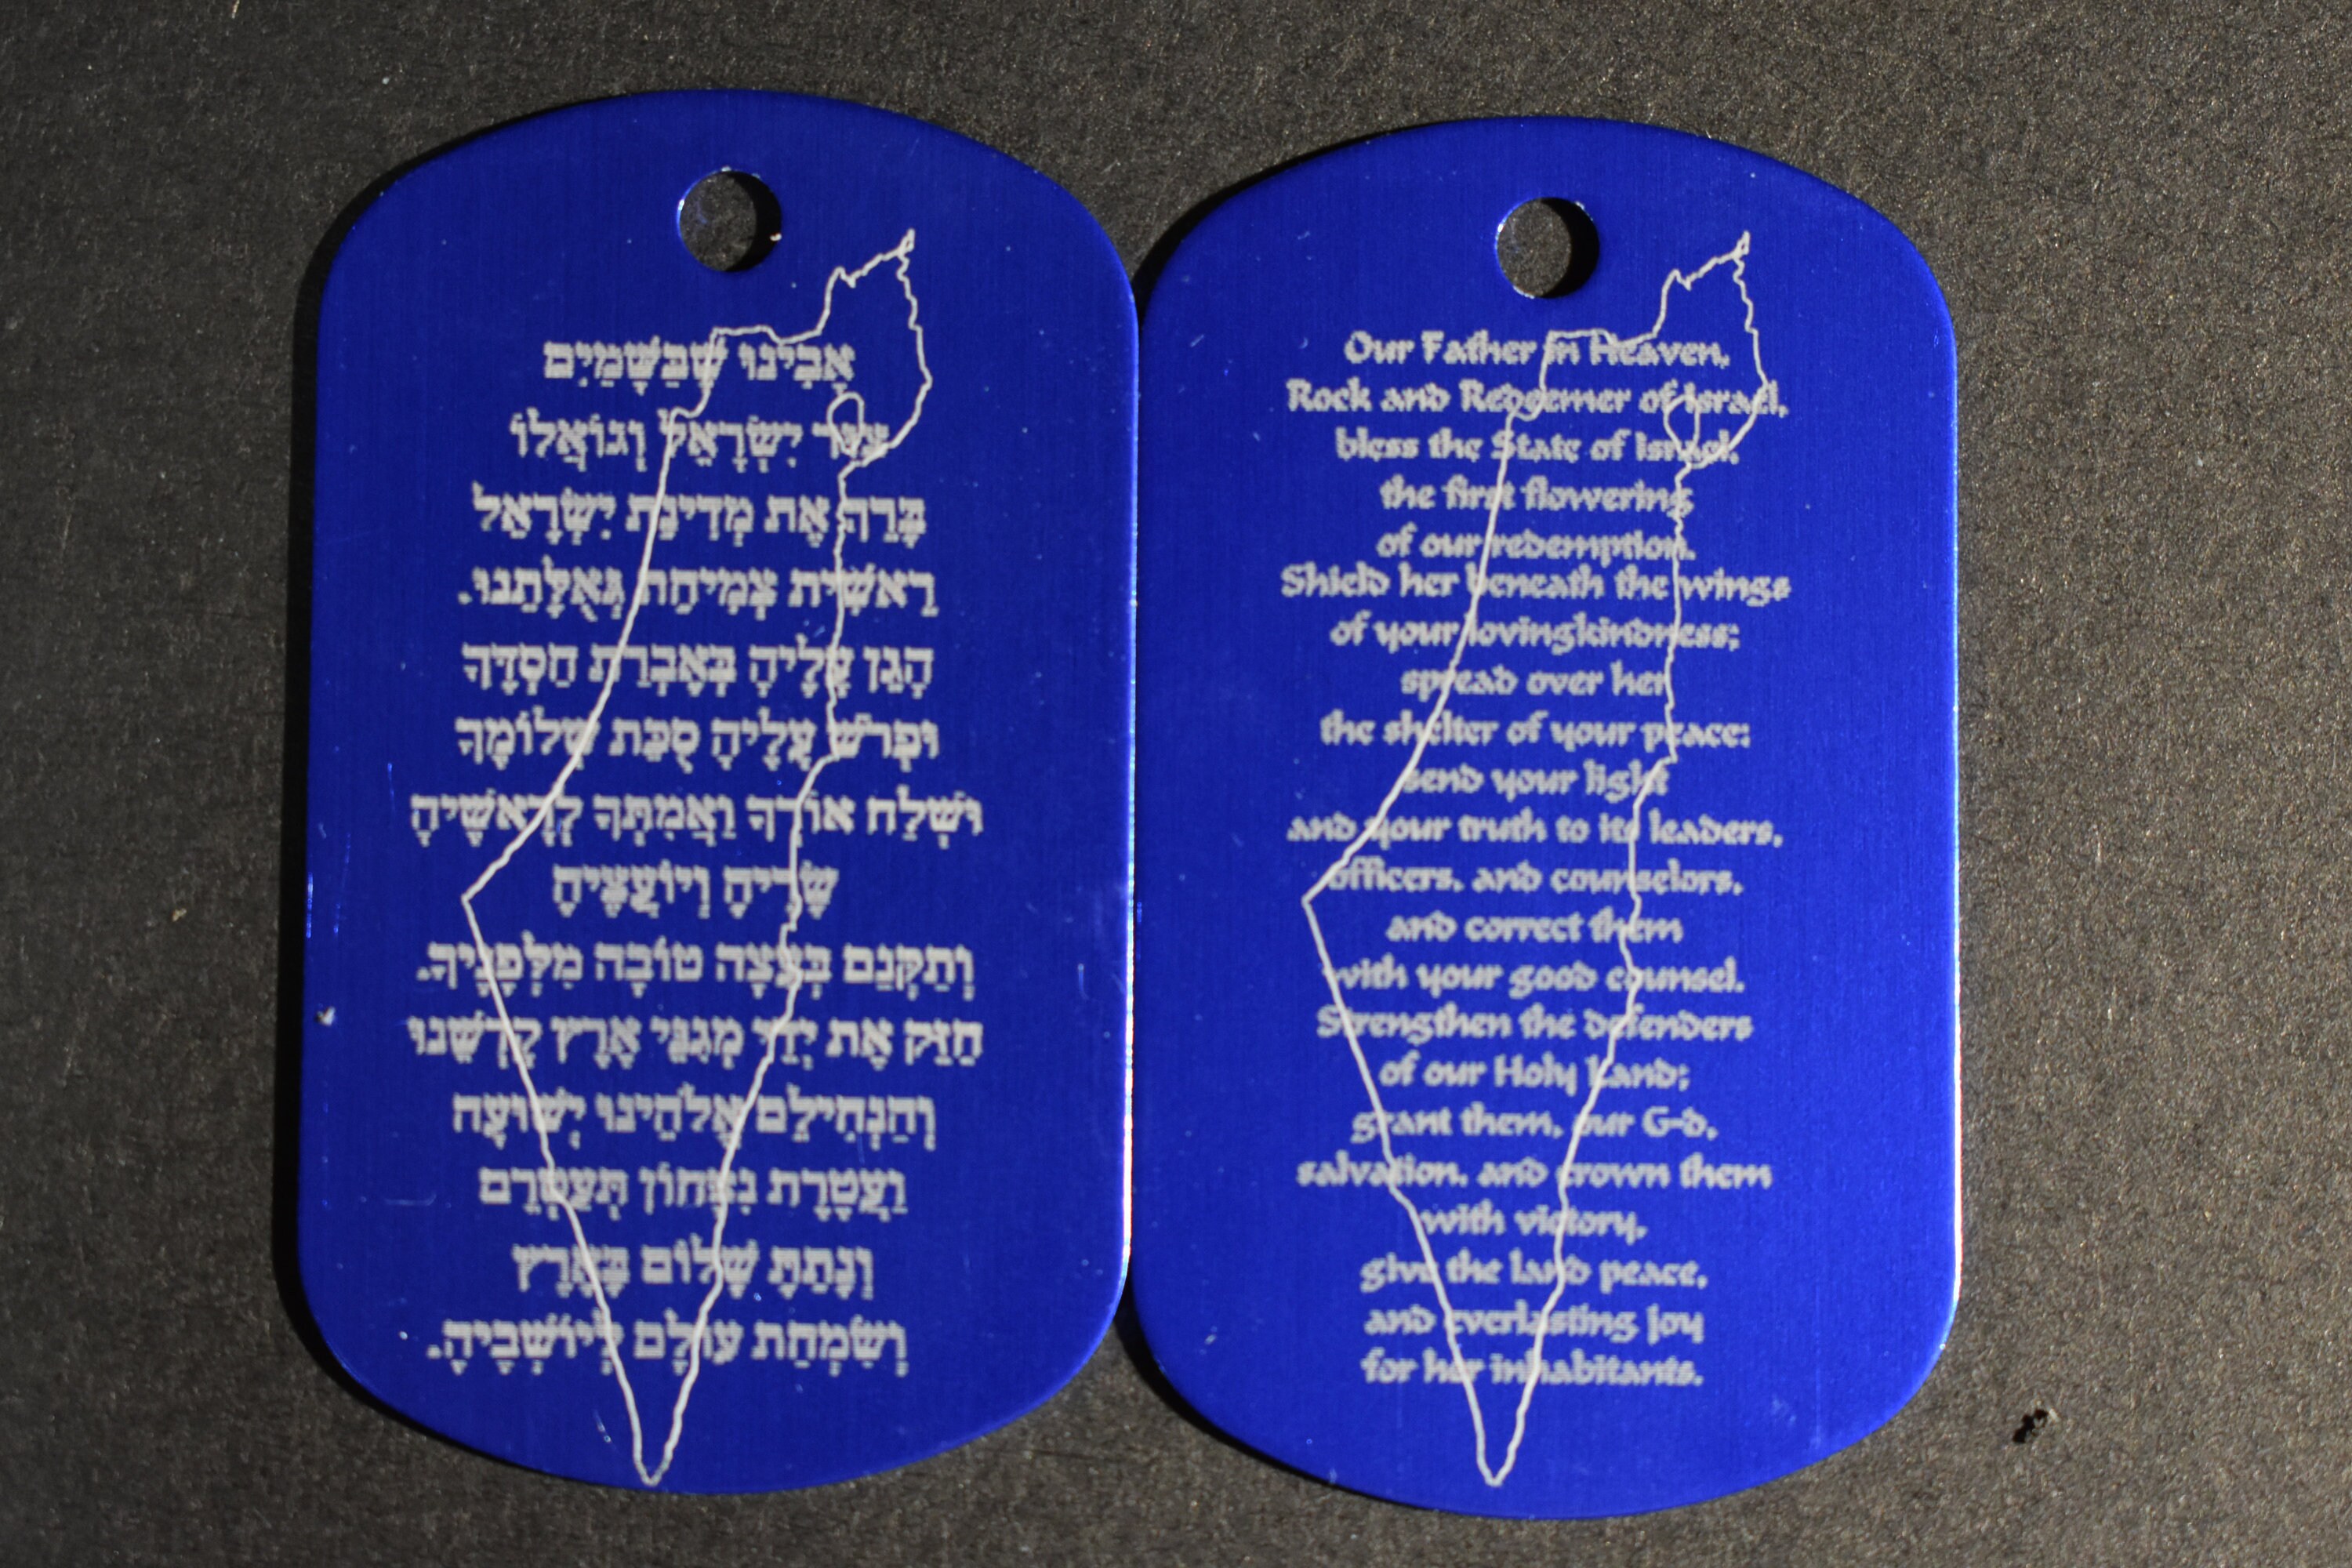 אָבִינוּ שֶׁבַּשָּׁמַיִם
צוּר יִשְׂרָאֵל וְגוֹאֲלוֹ
בָּרֵךְ אֶת מְדִינַת יִשְׂרָאֵל
רֵאשִׁית צְמִיחַת גְּאֻלָּתֵנוּ.
הָגֵן עָלֶיהָ בְּאֶבְרַת חַסְדֶּךָ
וּפְרֹשׂ עָלֶיהָ סֻכַּת שְׁלוֹמֶךָ
וּשְׁלַח אוֹרְךָ וַאֲמִתְּךָ לְרָאשֶׁיהָ
שָׂרֶיהָ וְיוֹעֲצֶיהָ
וְתַקְּנֵם בְּעֵצָה טוֹבָה מִלְּפָנֶיךָ.
חַזֵּק אֶת יְדֵי מְגִנֵּי אֶרֶץ קָדְשֵׁנוּ
וְהַנְחִילֵם אֱלֹהֵינוּ יְשׁוּעָה
וַעֲטֶרֶת נִצָּחוֹן תְּעַטְּרֵם
וְנָתַתָּ שָׁלוֹם בָּאָרֶץ
וְשִׂמְחַת עוֹלָם לְיוֹשְׁבֶיהָ.
Our Father in Heaven,
Rock and Redeemer of Israel,
bless the State of Israel,
the first flowering
of our redemption.
Shield her beneath the wings
of your lovingkindness;
spread over her
the shelter of your peace;
send your light
and your truth to its leaders,
officers, and counselors,
and correct them
with your good counsel.
Strengthen the defenders
of our Holy Land;
grant them, our G-d,
salvation, and crown them
with victory,
give the land peace,
and everlasting joy
for her inhabitants.